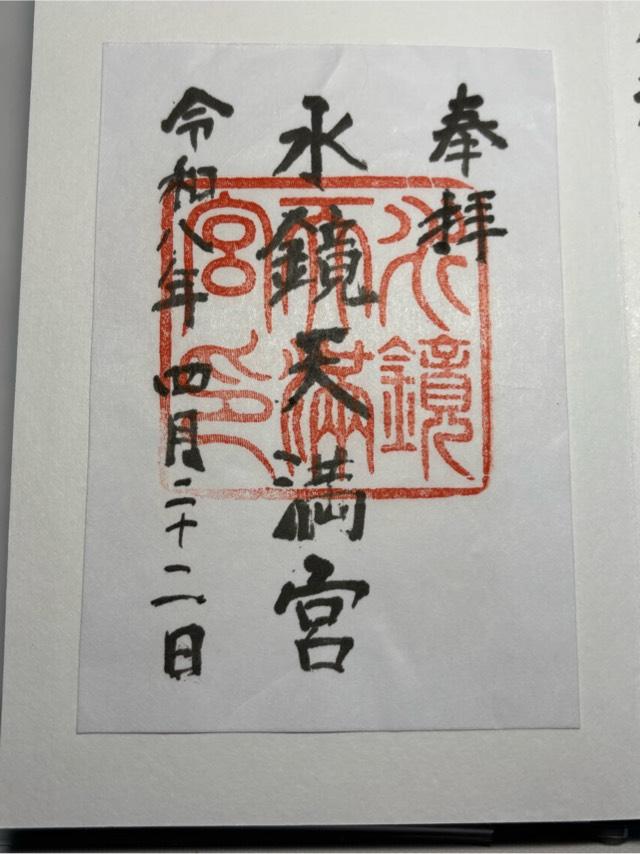 奉拝
水鏡天満宮
令和八年 四月二十二日
水鏡
天満
宮印